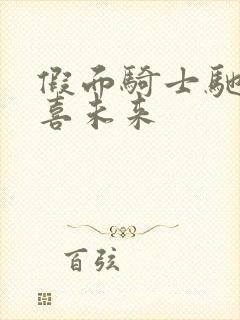 假面騎士馳
喜未来
百弦